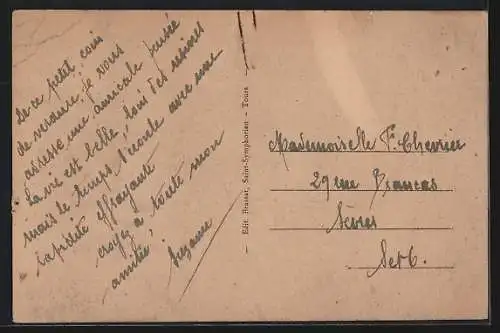 De ce petit coin
de verdure, je vous
adresse une amicale pensée
La vie est belle, loin des usines
mais le temps s'écoule avec une
rapidité effrayante
croyez à toute mon
amitié,
Suzanne
— Edit. Brassat, Saint-Symphorien - Tours —
Mademoiselle F. Chevrier
29 rue Brancas
Sèvres
S et O.